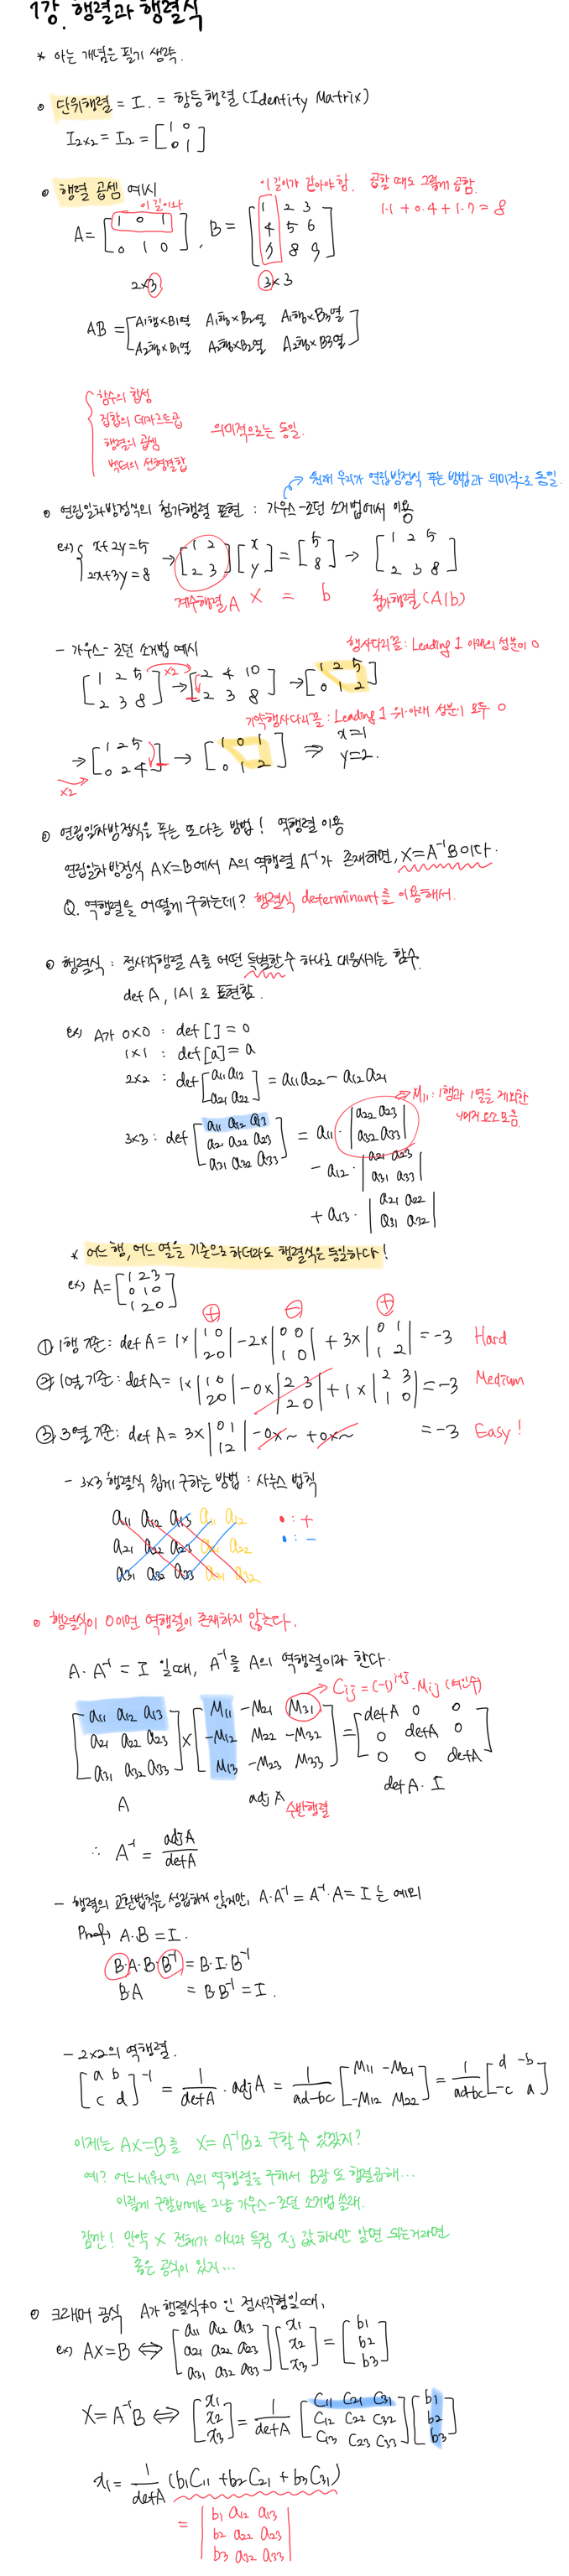 1강. 행렬과 행렬식
* 아는 개념은 필기 생략.
• 단위행렬 = I. = 항등행렬 (Identity Matrix)
I2x2 = I2 = [1 0
0 1]
• 행렬 곱셈 예시
이 길이와
이 길이가 같아야 함. 곱할 때도 그렇게 곱함.
1·1 + 0·4 + 1·7 = 8
A = [1 0 1
0 1 0], B = [1 2 3
4 5 6
7 8 9]
2x3 3x3
AB = [A1행×B1열 A1행×B2열 A1행×B3열
A2행×B1열 A2행×B2열 A2행×B3열]
함수의 합성
집합의 데카르트곱
행렬의 곱셈
벡터의 선형결합
의미적으로는 동일.
→ 원래 우리가 연립방정식 푸는 방법과 의미적으로 동일.
• 연립일차방정식의 첨가행렬 표현 : 가우스-조던 소거법에서 이용
ex) x+2y=5
2x+3y=8
→ [1 2
2 3] [x
y] = [5
8] → [1 2 5
2 3 8]
계수행렬 A X = b 첨가행렬 (A|b)
- 가우스-조던 소거법 예시
행사다리꼴 : Leading 1 아래의 성분이 0
[1 2 5
2 3 8] ×2 → [2 4 10
2 3 8] → [1 2 5
0 1 2]
기약행사다리꼴 : Leading 1 위·아래 성분이 모두 0
→ [1 2 5
0 2 4] → [1 0 1
0 1 2] ⇒ x=1
y=2.
×2
• 연립일차방정식을 푸는 또 다른 방법! 역행렬 이용
연립일차방정식 AX=B에서 A의 역행렬 A⁻¹가 존재하면, X=A⁻¹B이다.
Q. 역행렬을 어떻게 구하는데? 행렬식 determinant를 이용해서.
• 행렬식 : 정사각행렬 A를 어떤 특별한 수 하나로 대응시키는 함수.
det A, |A|로 표현함.
ex) A가 0×0 : det [ ] = 0
1×1 : det [a] = a
2×2 : det [a11 a12
a21 a22] = a11a22 - a12a21
→ M11 : 1행과 1열을 제외한
나머지 요소 모음.
3×3 : det [a11 a12 a13
a21 a22 a23
a31 a32 a33] = a11 · |a22 a23
a32 a33|
- a12 · |a21 a23
a31 a33|
+ a13 · |a21 a22
a31 a32|
* 어느 행, 어느 열을 기준으로 하더라도 행렬식은 동일하다!
ex) A = [1 2 3
0 1 0
1 2 0]
⊕ ⊖ ⊕
① 1행 기준 : det A = 1×|1 0
2 0| - 2×|0 0
1 0| + 3×|0 1
1 2| = -3 Hard
② 1열 기준 : det A = 1×|1 0
2 0| - 0×|2 3
2 0| + 1×|2 3
1 0| = -3 Medium
③ 3열 기준 : det A = 3×|0 1
1 2| - 0×~ + 0×~ = -3 Easy!
- 3×3 행렬식 쉽게 구하는 방법 : 사루스 법칙
a11 a12 a13 a11 a12 • : +
a21 a22 a23 a21 a22 • : -
a31 a32 a33 a31 a32
• 행렬식이 0이면 역행렬이 존재하지 않는다.
A·A⁻¹ = I 일 때, A⁻¹를 A의 역행렬이라 한다.
→ Cij = (-1)^i+j · Mij (여인수)
[a11 a12 a13
a21 a22 a23
a31 a32 a33] × [M11 -M21 M31
-M12 M22 -M32
M13 -M23 M33] = [detA 0 0
0 detA 0
0 0 detA]
A adj A 수반행렬 det A · I
∴ A⁻¹ = adj A / det A
- 행렬의 교환법칙은 성립하지 않지만, A·A⁻¹ = A⁻¹·A = I 는 예외
Proof) A·B = I.
B·A·B·B⁻¹ = B·I·B⁻¹
B·A = BB⁻¹ = I.
- 2×2의 역행렬.
[a b
c d]⁻¹ = 1/detA · adj A = 1/ad-bc [M11 -M21
-M12 M22] = 1/ad-bc [d -b
-c a]
이제는 AX=B를 X=A⁻¹B로 구할 수 있겠지?
예? 어느 세월에 A의 역행렬을 구해서 B랑 또 행렬곱해...
이렇게 구할바에는 그냥 가우스-조던 소거법 쓸래.
잠깐! 만약 X 전체가 아니라 특정 xj 값 하나만 알면 되는거라면
좋은 공식이 있지...
• 크래머 공식 A가 행렬식≠0 인 정사각형일 때,
ex) AX=B ⇔ [a11 a12 a13
a21 a22 a23
a31 a32 a33] [x1
x2
x3] = [b1
b2
b3]
X=A⁻¹B ⇔ [x1
x2
x3] = 1/detA [C11 C21 C31
C12 C22 C32
C13 C23 C33] [b1
b2
b3]
x1 = 1/detA (b1C11 + b2C21 + b3C31)
= |b1 a12 a13
b2 a22 a23
b3 a32 a33|